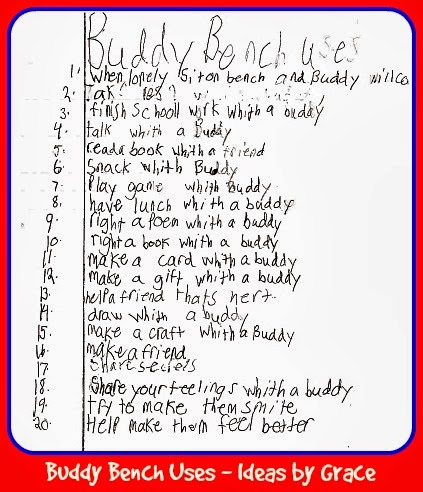 Buddy Bench uses
1. When lonely Sit on bench and Buddy will co
2.
3. finish school work whith a buddy
4. talk whith a Buddy
5. read a book whith a friend
6. Snack whith Buddy
7. Play game whith Buddy
8. have lunch whith a buddy
9. right a Poem whith a buddy
10. right a book whith a buddy
11. make a card whith a buddy
12. make a gift whith a buddy
13. help a friend thats hert.
14. draw whith a buddy
15. make a craft whith a Buddy
16. make a friend
17. Share secrets
18. Share your feelings whith a buddy
19. try to make them smile
20. Help make them feel better
Buddy Bench Uses - Ideas by Grace